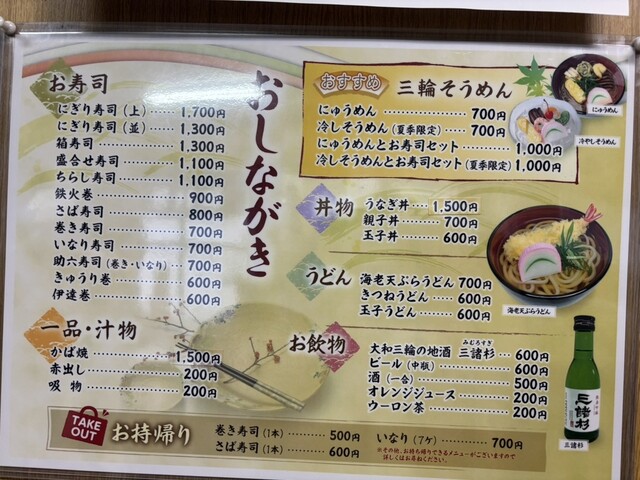 おしながき
お寿司
にぎり寿司(上)…1,700円
にぎり寿司(並)…1,300円
箱寿司…1,300円
盛合せ寿司…1,100円
ちらし寿司…1,100円
鉄火巻…900円
さば寿司…800円
巻き寿司…700円
いなり寿司…700円
助六寿司(巻き・いなり)…700円
きゅうり巻…600円
伊達巻…600円
一品・汁物
かば焼…1,500円
赤出し…200円
吸物…200円
おすすめ 三輪そうめん
にゅうめん…700円
冷しそうめん(夏季限定)…700円
にゅうめんとお寿司セット…1,000円
冷しそうめんとお寿司セット(夏季限定)…1,000円
にゅうめん
冷やしそうめん
丼物
うなぎ丼…1,500円
親子丼…700円
玉子丼…600円
うどん
海老天ぷらうどん 700円
きつねうどん…600円
玉子うどん…600円
海老天ぷらうどん
お飲物
みむろすぎ
大和三輪の地酒 三諸杉…600円
ビール(中瓶)…600円
酒(一合)…500円
オレンジジュース…200円
ウーロン茶…200円
三諸杉
三諸杉
TAKE OUT
お持帰り
巻き寿司(1本)…500円
さば寿司(1本)…600円
いなり(7ケ)…700円
※その他、お持ち帰りできるメニューがございますので
詳しくはお尋ねください。